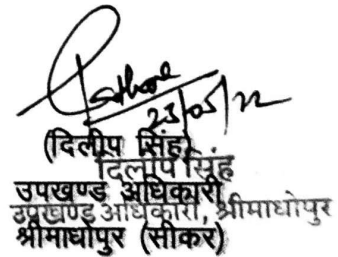 23/05/22
(दिलीप सिंह)
दिलीप सिंह
उपखण्ड अधिकारी
उपखण्ड अधिकारी, श्रीमाधोपुर
श्रीमाधोपुर (सीकर)